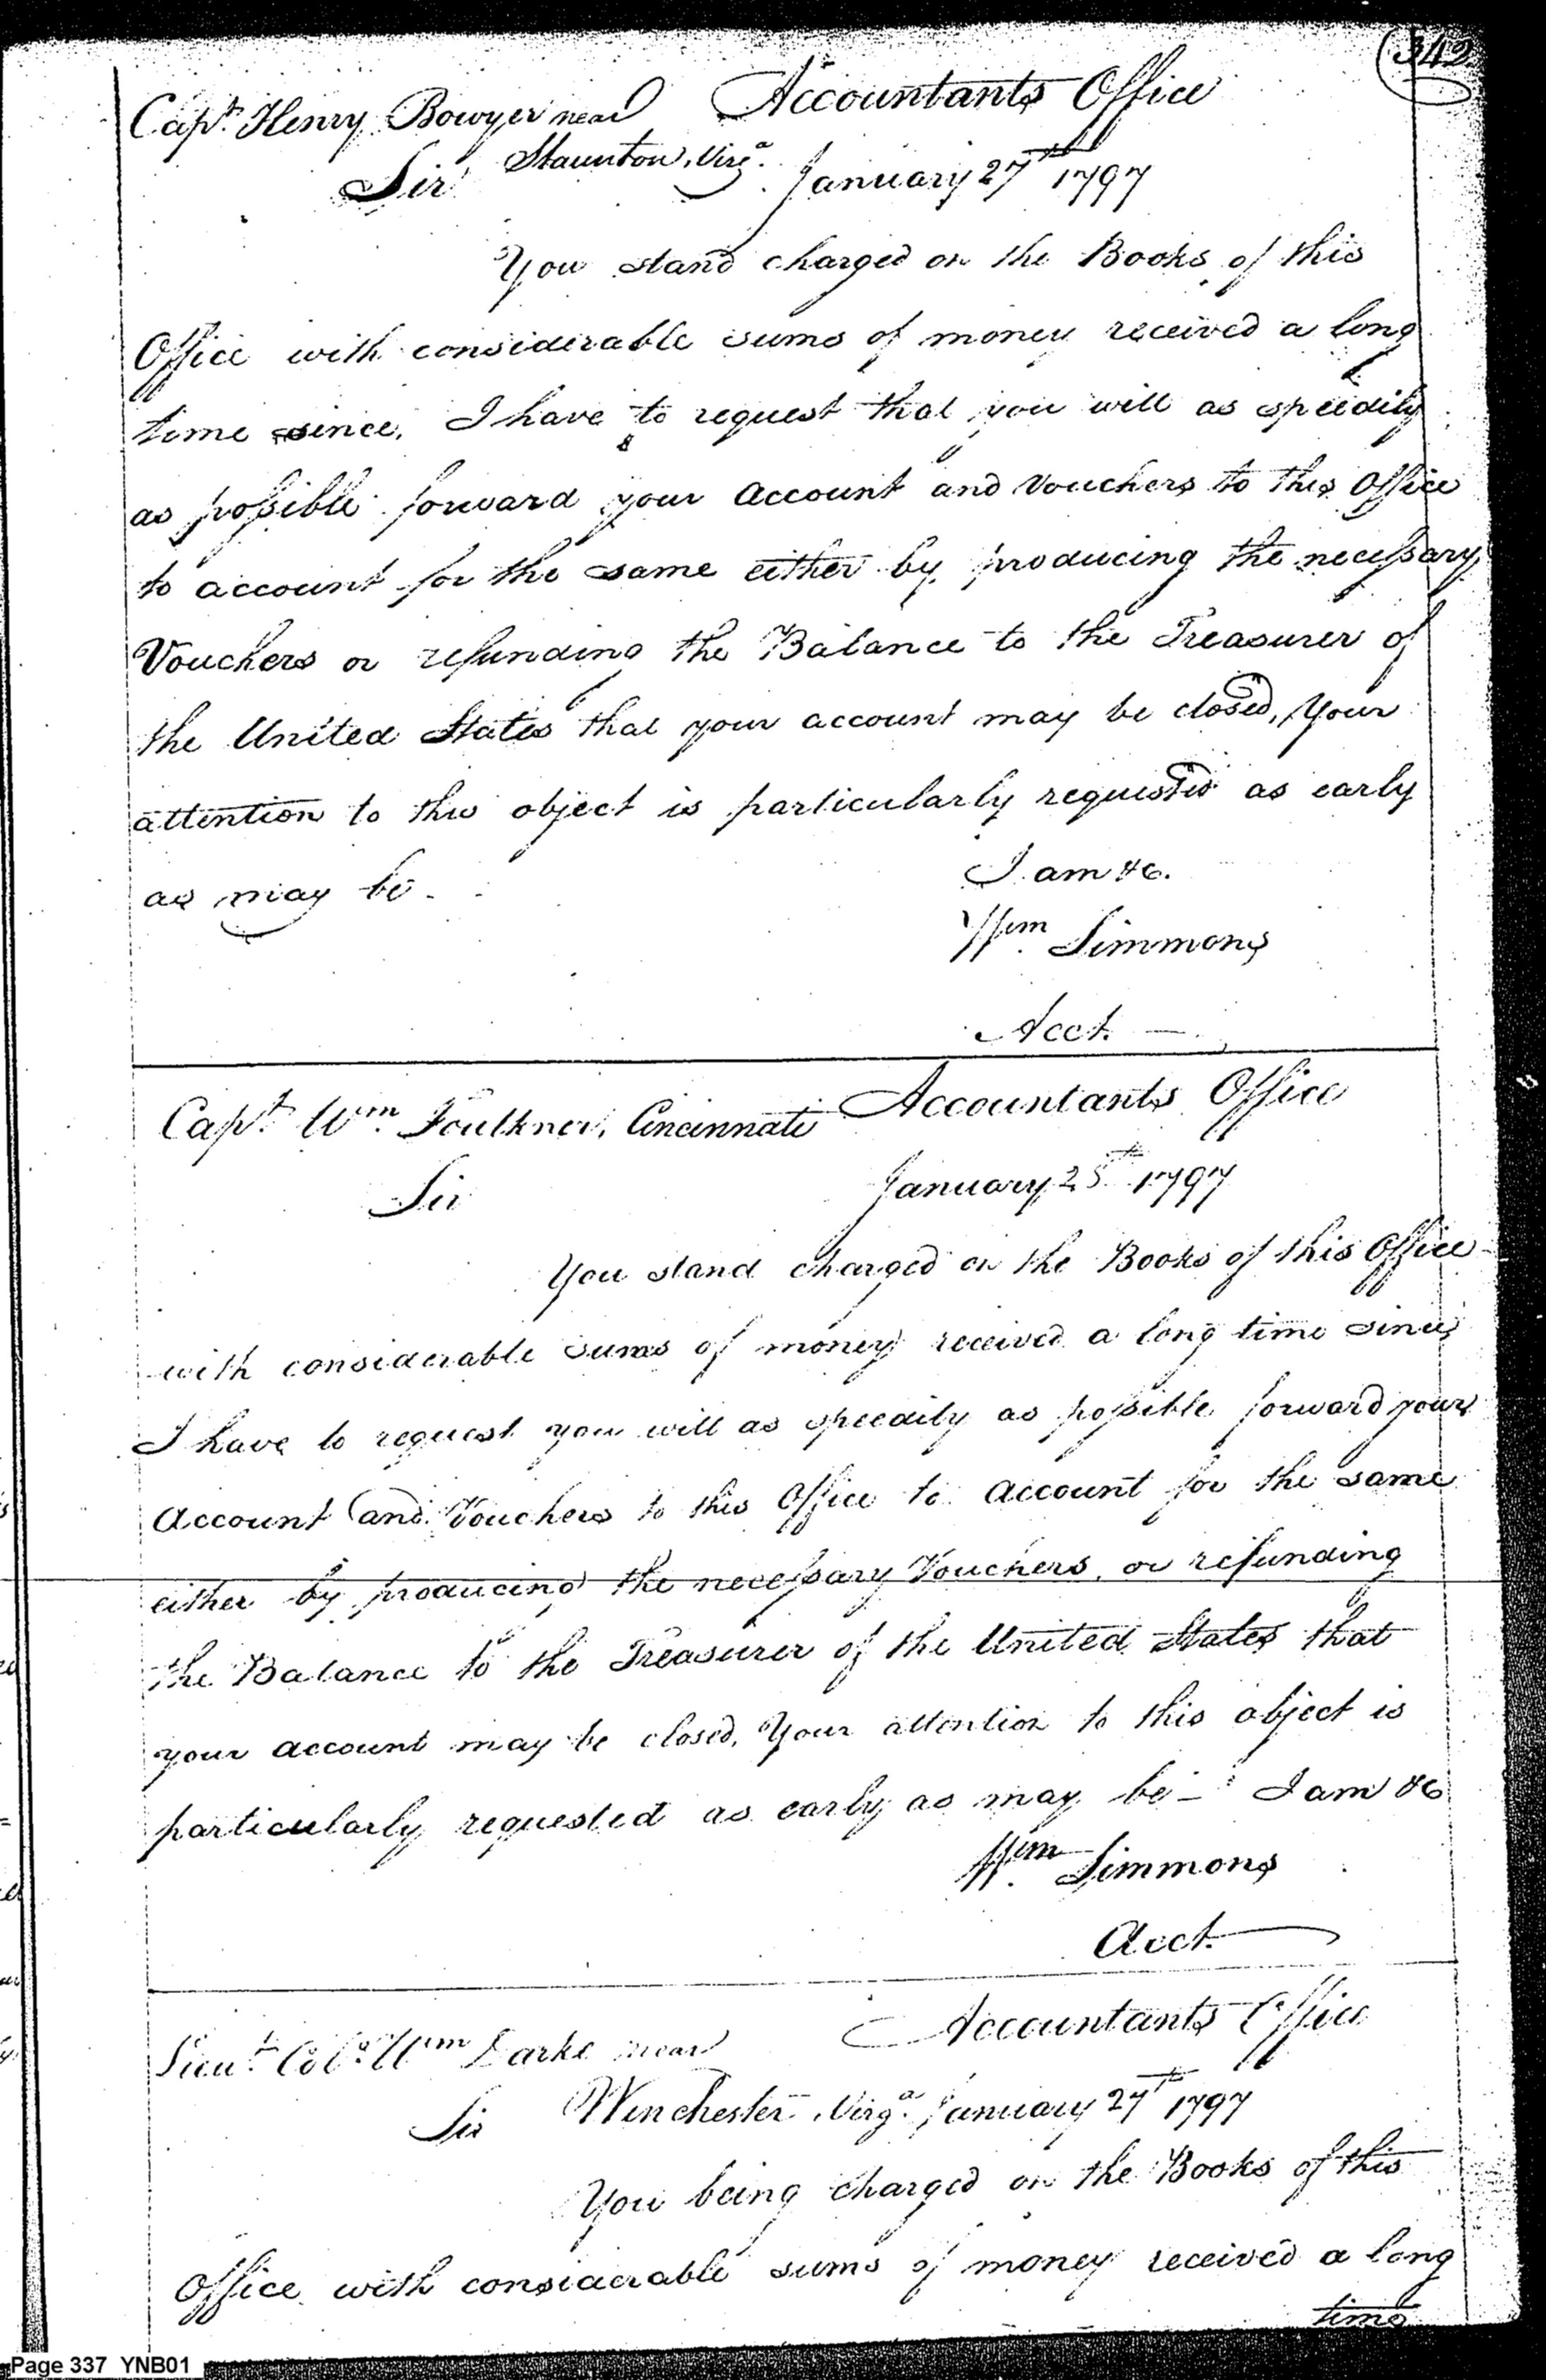 342
Capt Henry Bowyer near Accountants Office
Staunton, Virga. January 27th 1797
Sir
You stand charged on the Books of this
Office with considerable sums of money received a long
time since, I have to request that you will as speedily
as possible forward your Account and Vouchers to this Office
to account for the same either by producing the necessary
Vouchers or refunding the Balance to the Treasurer of
the United States that your account may be closed, Your
attention to this object is particularly requested as early
as may be. I am &c.
Wm Simmons
Acct.
Capt Wm Foulkner, Cincinnati Accountants Office
Sir January 25th 1797
You stand charged on the Books of this Office
with considerable sums of money received a long time since,
I have to request you will as speedily as possible forward your
Account and Vouchers to this Office to Account for the same
either by producing the necessary Vouchers, or refunding
the Balance to the Treasurer of the United States that
your account may be closed, Your attention to this object is
particularly requested as early as may be - I am &c
Wm Simmons
Acct.
Lieut Colo. Wm Darke near Accountants Office
Winchester, Virga. January 27th 1797
Sir
You being charged on the Books of this
Office with considerable sums of money received a long
time
Page 337 YNB01